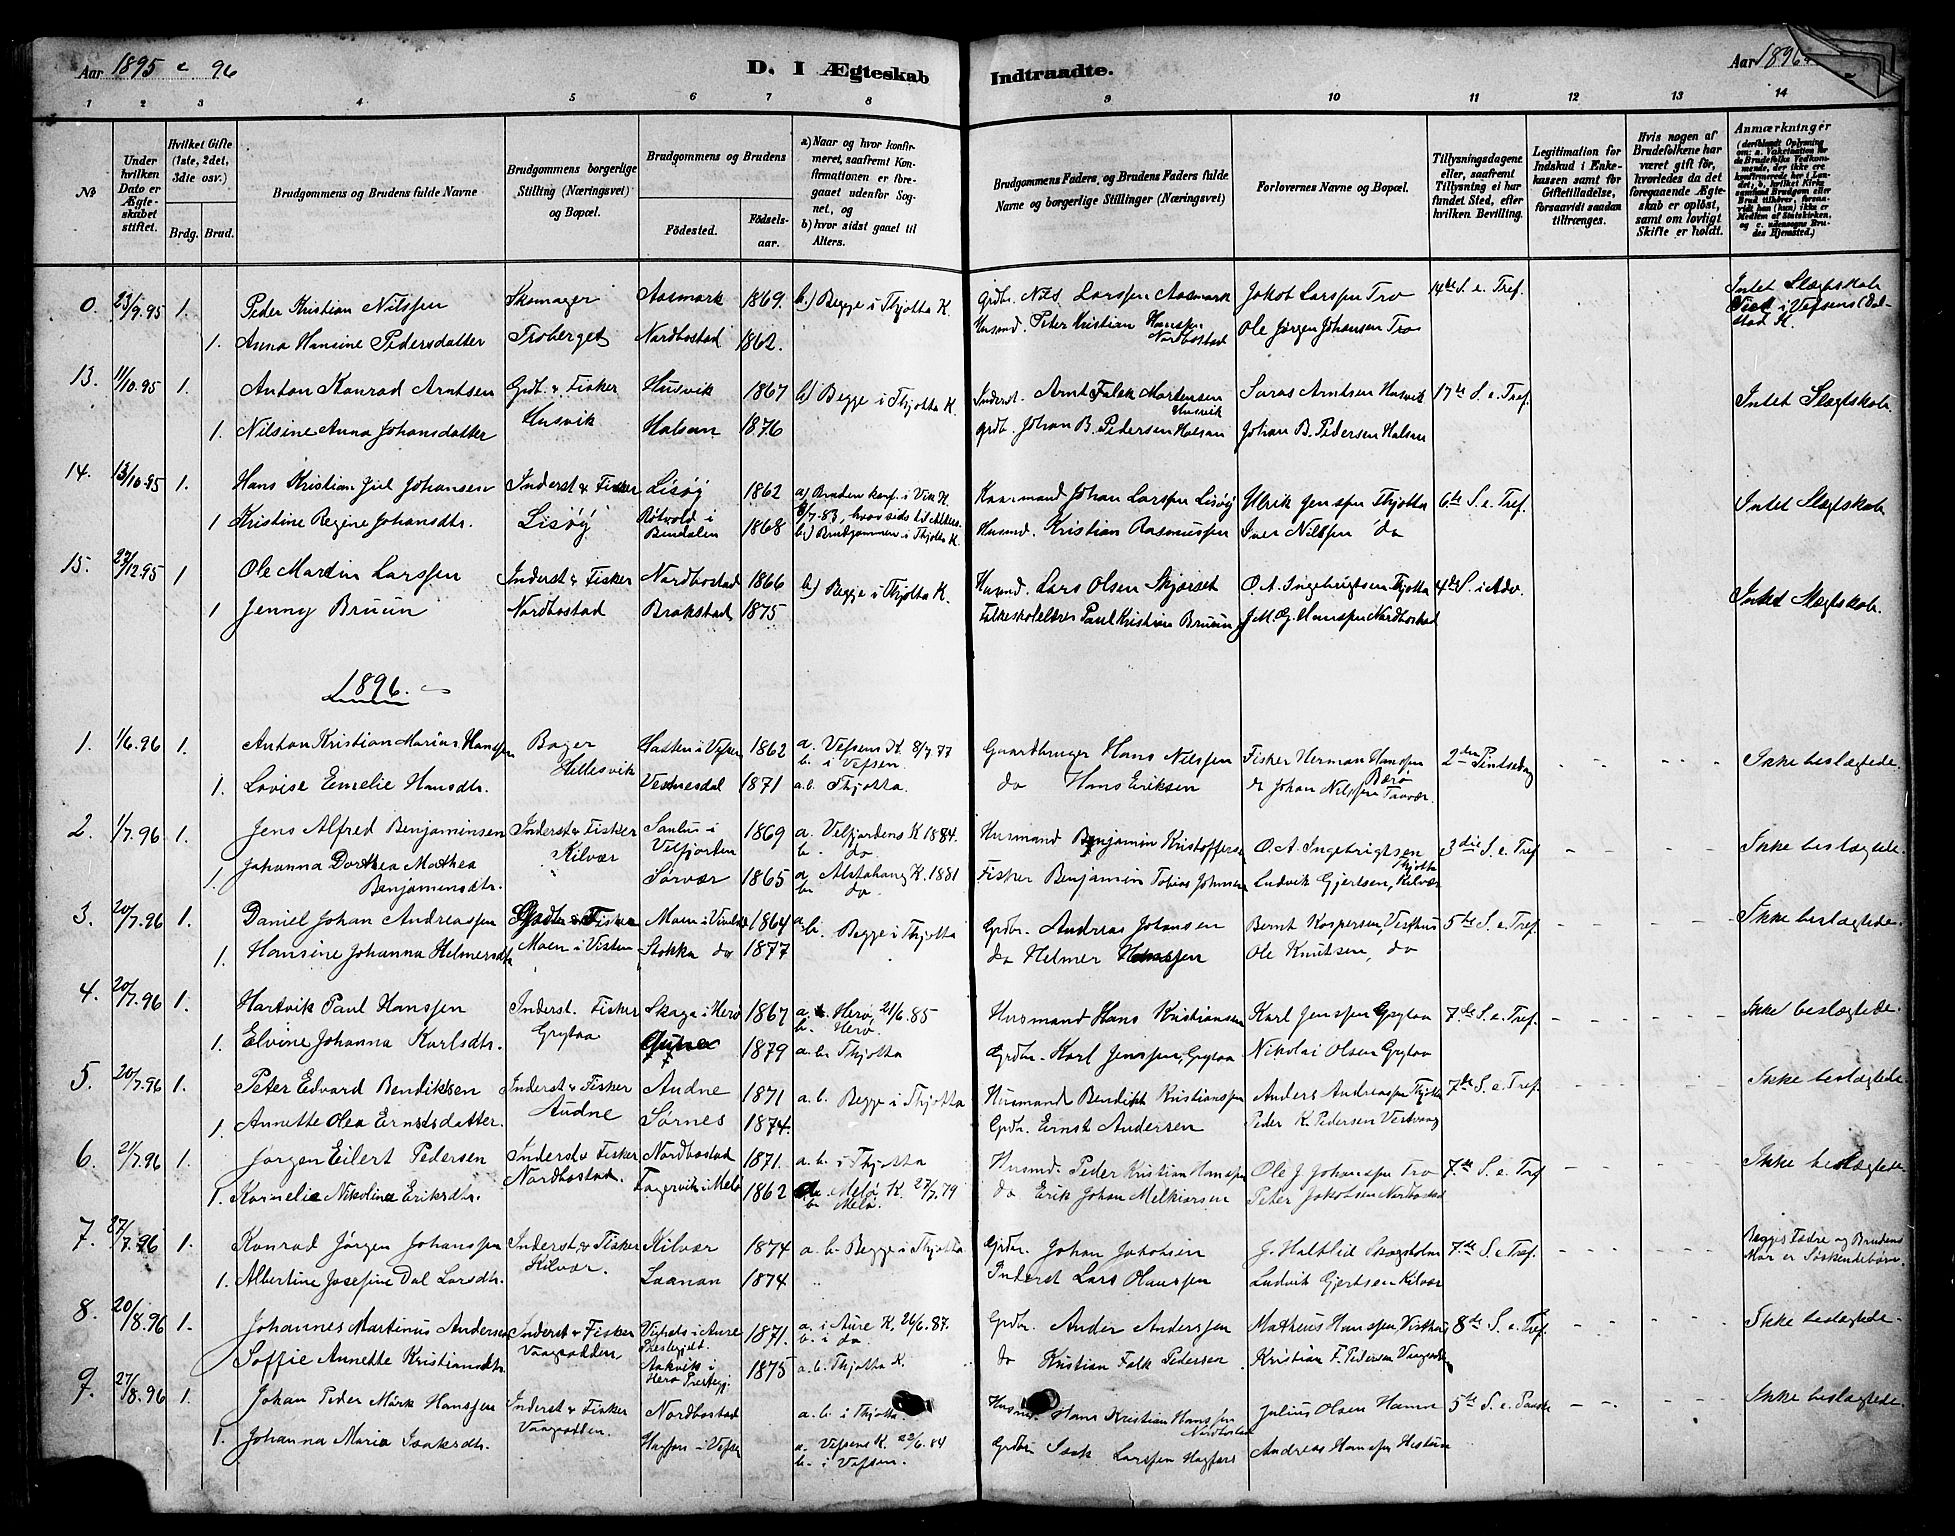 Aar 1895 e 96
D. I Ægteskab Indtraadte.
Aar 1896
1 2 3 4 5 6 7 8 9 10 11 12 13 14
No
Under hvilken Dato er Ægteskabet stiftet.
Hvilket Gifte (1ste, 2det, 3die osv.)
Brdg. Brud.
Brudgommens og Brudens fulde Navne
Brudgommens borgerlige Stilling (Næringsvei) og Bopæl.
Brudgommens og Brudens
Fødested. Fødselsaar.
a) Naar og hvor konfirmeret, saafremt Konfirmationen er foregaaet udenfor Sognet, og
b) hvor sidst gaaet til Alters.
Brudgommens Faders, og Brudens Faders fulde Navne og borgerlige Stillinger (Næringsvei)
Forlovernes Navne og Bopæl.
Tillysningsdagene eller, saafremt Tillysning ei har fundet Sted, efter hvilken Bevilling.
Legitimation for Indskud i Enkekassen samt for Giftetilladelse, forsaavidt saadan tiltrænges.
Hvis nogen af Brudefolkene har været gift før, hvorledes da det foregaaende Ægteskab er opløst, samt om lovligt Skifte er holdt.
Anmærkninger
0 23/9.95 1. Peder Kristian Nilssen Skomager Aasmork 1869. b.) Begge i Thjøtta K. Grdbr. Nils Larssen Aasmork Jakob Larssen Tro 14de S. e. Tref. Intet Slægtskab
1. Anna Hansine Pedersdatter Troberget Nordbostad 1862. Husmd. Peter Kristian Hanssen Nordbostad Ole Jørgen Johansen Tro
13. 11/10.95 1. Anton Konrad Arntsen Grdb. & Fisker Husvik 1867 b) Begge i Thjøtta K. Inderst. Arnt Falck Mortensen Husvik Saras Arntsen Husvik 17de S. e. Tref. Intet Slægtskab
1. Nilsine Anna Johansdatter Husvik Halsan 1876 Grdb. Johan B. Pedersen Halsan Johan B. Pedersen Halsan
14. 13/10.95 1. Hans Kristian Juel Johansen Inderst & Fisker Lisøy 1862 a) Bruden konf. i Vik K. Kaarmand Johan Larssen Lisøy Ulrik Jenssen Thjøtta 6te S. e. Tref. Intet Slægtskab
1 Kristine Regine Johansdtr. Lisøy i Bindalen 1868 8/7.83, hvor sidst til Alters. b.) Brudgommen i Thjøtta K. Husmd. Kristian Rasmussen Iver Nilssen do
15. 27/12.95 1 Ole Martin Larssen Inderst & Fisker Nordbostad 1866 b.) Begge i Thjøtta K. Husmd. Lars Olsen Skjæret O. A. Ingebrigtsen Thjøtta 4de S. i Adv. Intet Slægtskab.
1 Jenny Bruun Nordbostad Brakstad 1875 Folkeskolelærer Paul Kristian Bruun J. M. G. Hanssen Nordbostad
1896.
1. 1/6.96 1. Anton Kristian Marius Hanssen Bager i Vefsen 1862 a. Vefsens K. 8/7.77 b. i Vefsen. Gaardbruger Hans Nilssen Fisker Herman Hanssen Bærø 2den Pintsedag - - Ikke beslægtede.
1. Lovise Emelie Hansdtr. Hellesvik Vestnesdal 1871 a.b. Thjøtta. do Hans Eriksen do Johan Nilssen
2. 1/7.96 1. Jens Alfred Benjaminsen Inderst & Fisker Sanlus i Velfjorden 1869 a. Velfjordens K 1884. b. do. Husmand Benjamin Kristoffersen O. A. Ingebrigtsen Thjøtta 3die S. e. Tref - - Ikke beslægtede.
1. Johanna Dorthea Mathea Benjaminsdtr. Kilvær Sørvær 1865 a. Alstahaug K. 1881 b. do. Fisker Benjamin Tobias Johnsen Ludvik Gjertsen, Kilvær
3. 20/7.96 1. Daniel Johan Andreassen Grdb. & Fisker Moen i Visten 1864 a.b. Begge i Thjøtta Grdbr. Andreas Johansen Bernt Kaspersen, Visthus 5te S. e. Tref. - - Ikke beslægtede.
1. Hansine Johanna Helmersdtr Moen i Visten Stokka do 1877 do Helmer Hanssen Ole Knutsen, do
4. 20/7.96 1. Hartvik Paul Hanssen Inderst. Fisker Skaga i Herø 1867 a. Herø, 21/6.85 b. Herø. Husmand Hans Kristiansen Karl Jenssen Grytaa 7de S. e. Tref. - - Ikke beslægtede.
1. Elvine Johanna Karlsdtr. Grytaa 1879 a.b. Thjøtta Grdbr. Karl Jenssen, Grytaa Nikolai Olsen Grytaa
5. 20/7.96 1. Peter Edvard Bendiksen Inderst & Fisker Audne 1871 a. b. Begge i Thjøtta Husmand Bendikt Kristianssen Anders Andreassen Thjøtta 7de S. e. Tref. - - Ikke beslægtede.
1. Annette Olea Ernstsdatter. Audne Sørnes 1874. Grdbr. Ernst Andersen Peder K. Pedersen Vestvaag
6. 21/7.96 1. Jørgen Eilert Pedersen Inderst & Fisker Nordbostad 1871. a.b. i Thjøtta Husmd. Peder Kristian Hanssen Ole J. Johanssen Tro 7de S. e. Tref - - Ikke beslægtede
1. Kornelie Nikoline Eriksdtr. Nordbostad. Fagervik i Melø 1862 a. Melø K. 27/7.79 b. Melø. do Erik Johan Melkiorsen Peter Jakobsen Nordbostad
7. 27/7.96 1. Konrad Jørgen Johanssen Inderst, & Fisker Kilvær 1874 a. b. Begge i Thjøtta. Grdbr. Johan Jakobsen J. Haltlid Skogsholm 7de S. e. Tref. - - Begges Fædre og Brudens Mor er Søskendebørn.
1. Albertine Josefine Dal Larsdtr. Kilvær. Laanan 1874 Inderst Lars Olaussen Ludvik Gjertsen Kilvær
8. 20/8.96 1. Johannes Martinus Andersen Inderst & Fisker i Aure Prestegjeld. 1871. a. i Aure K. 26/6.87. b. i do. Grdbr. Ander Anderssen Matheus Hanssen, Visthus 8de S. e. Tref. - - Ikke beslægtede.
Soffie Annette Kristiansdtr. Vaagsodden Aakvik i Herø Prestegj. 1875 a.b. Thjøtta K. do Kristian Falk Pedersen Kristian F. Pedersen
9. 27/8.96 1. Johan Peder Mørk Hanssen Inderst & Fisker Nordbostad a. b. i Thjøtta. Husmd. Hans Kristian Hanssen Nordbostad Julius Olsen Hamn 5te S. e. Paaske - - Ikke beslægtede.
1. Johanna Maria Isaksdtr. Vaagsodden. i Vefsn a. Vefsens K. 22/6.84 b. i Vefsen. Grdbr Isak Larssen Andreas Hanssen